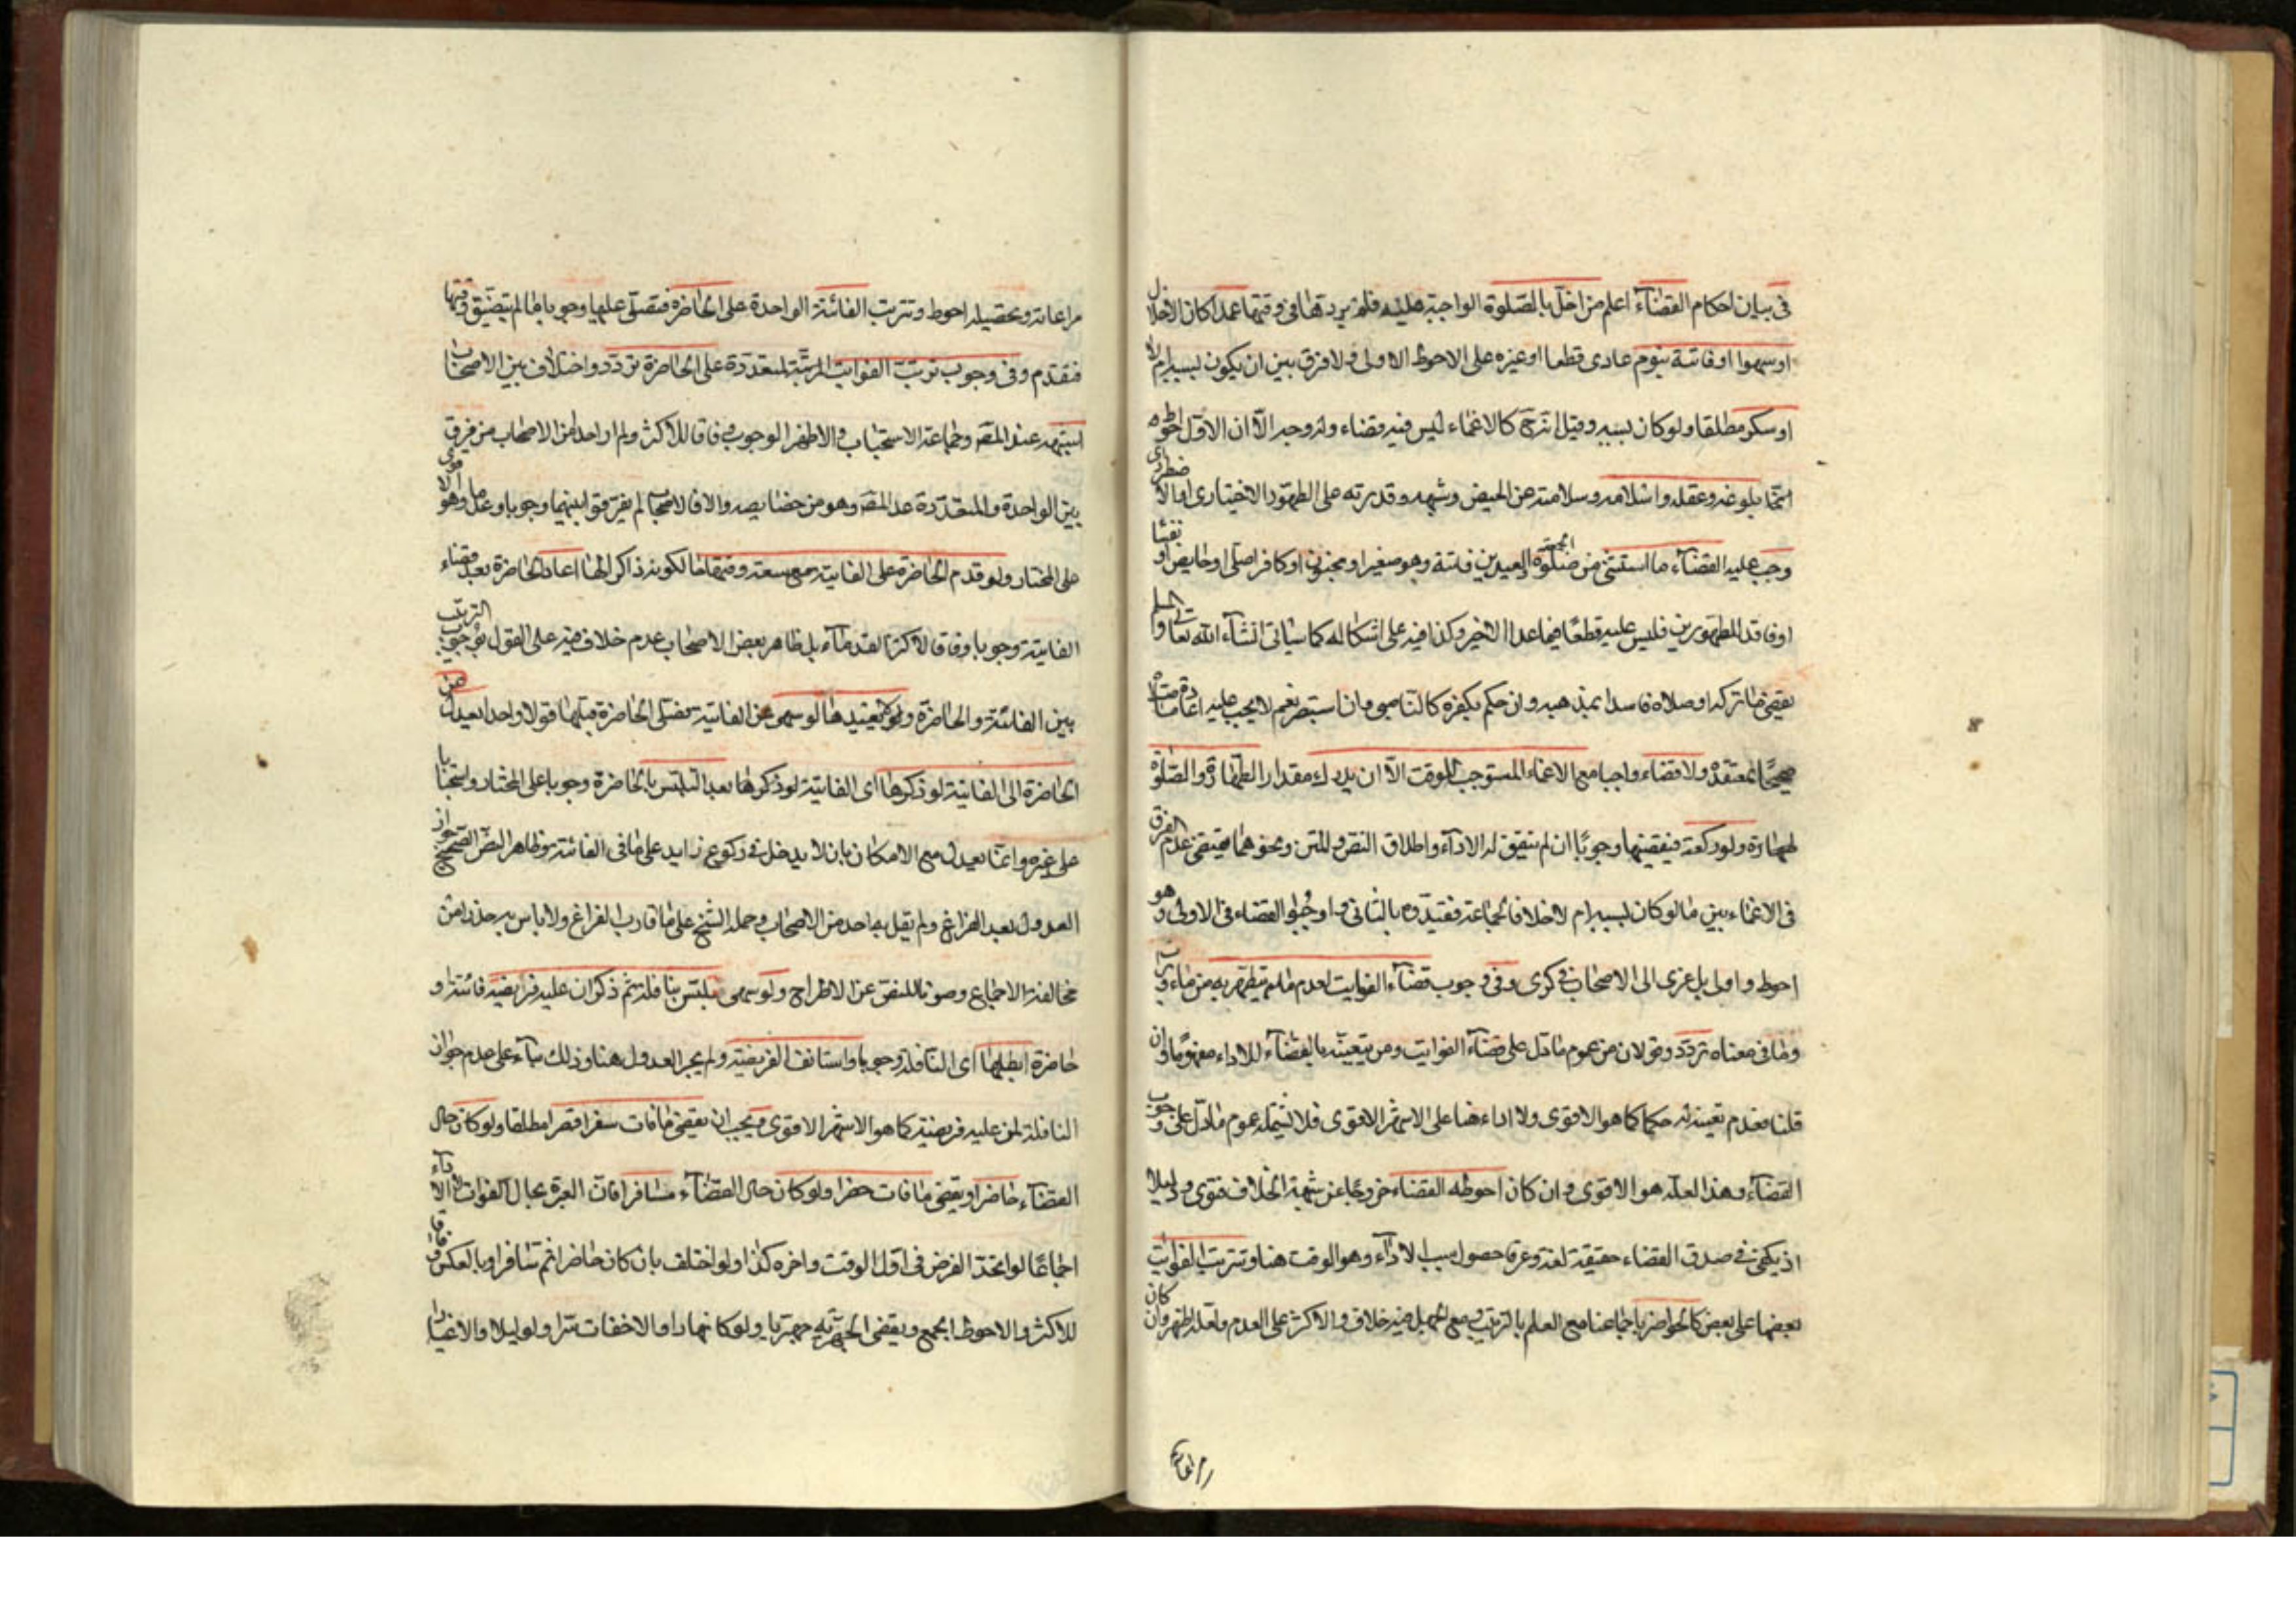 في بيان احكام القضاء اعلم من اخل بالصلوة الواجبة عليه فلم يرد تها في وقتها عمدا كان الاخلال
او سهوا او فائتة بنوم عادى قطعا او غيره على الاحوط الاولى ولا فرق بين ان يكون بسببه ام لا
او سكر مطلقا ولو كان بسببه وقيل انه كالاغماء ليس فيه قضاء وله وجه الا ان الاول احوط
بلوغه وعقله واسلامه وسلامته عن الحيض وشبهه وقدرته على الطهور الاختيارى او الاضطرارى
وجب عليه القضاء ما استثنى من صلوة الجمعة والعيدين فائتة وهو صغير او مجنون او كافر اصلى او حايض او نفسا
او فاقد الطهورين فليس عليه قطعا فيما عدا الاخير وكذا فيه على اشكال له كما سيأتى انشاء الله تعالى
يقضى ما تركه او صلاه فاسدا بمذهبه وان حكم بكفره كالناصبى وان استبصر نعم لا يجب عليه اعادة ما صلاه
صحيحا بمعتقده ولا قضاء واجبا مع الاغماء المستوجب للوقت الا ان يدرك مقدار الطهارة والصلوة
طهارة ولو ركعة فيقضيها وجوبا ان لم يتفق له الاداء واطلاق النص والمتن ونحوهما يقتضى عدم الفرق
في الاغماء بين ما لو كان بسببه ام لا خلافا لجماعة فقيدوه بالثانى واوجبوا القضاء في الاولى وهو
احوط واولى بل عزى الى الاصحاب في كرى وفي وجوب قضاء الفوايت لعدم ما يتطهر به من ماء وتراب
وما في معناه تردد وقولان من عموم ما دل على قضاء الفوايت ومن تبعيته بالقضاء للاداء مفهوما وان
قلنا بعدم تبعيته له حكما كما هو الاقوى ولا اداء هنا على الاشهر الاقوى فلا يشمله عموم ما دل على وجوب
القضاء وهذا لعله هو الاقوى وان كان احوطه القضاء خروجا عن شبهة الخلاف فتوى ودليلا
اذ يكفى في صدق القضاء حقيقة لغة وعرفا حصول سبب الاداء وهو الوقت هنا وتترتب الفوايت
بعضها على بعض كالحواضر باجماعنا مع العلم بالترتيب ومع الجهل فيه خلاف والاكثر على العدم ولعله اظهر وان كان
مراعاته
مراعاته وتحصيله احوط وتترتب الفائتة الواحدة على الحاضرة فتصلى عليها وجوبا ما لم يتضيق وقتها
فتقدم وفي وجوب ترتيب الفوايت المرتبة المتعددة على الحاضرة تردد واختلاف بين الاصحاب
اشبهه عند المصنف وجماعة الاستحباب والاظهر الوجوب وفاقا للاكثر ولم ار احدا من الاصحاب من فرق
بين الواحدة والمتعددة عدا المصنف وهو من خصايصه والا فالاصحاب لم يفرقوا بينهما وجوبا وعدما وهو الاقوى
على المختار ولو قدم الحاضرة على الفايتة مع سعة وقتها لكونه ذاكرا لها اعاد الحاضرة بعد قضاء
الفايتة وجوبا وفاقا لاكثر القدماء بل ظاهر بعض الاصحاب عدم خلاف فيه على القول بوجوب الترتيب
بين الفائتة والحاضرة ولا يعيدها لو سهى عن الفايتة فصلى الحاضرة قبلها قولا واحدا يعدل عن
الحاضرة الى الفايتة لو ذكرها اى الفايتة لو ذكرها بعد التلبس بالحاضرة وجوبا على المختار واستحبابا
على غيره وانما يعدل مع الامكان بان لا يدخل في ركوع زايد على ما في الفائتة وظاهر النص الصحيح جواز
العدول بعد الفراغ ولم يقل به احد من الاصحاب وحمله الشيخ على ما قارب الفراغ ولا باس به حذرا من
مخالفة الاجماع وصونا للنص عن الاطراح ولو سهى فتلبس بنافلة ثم ذكر ان عليه فريضة فائتة او
حاضرة ابطلها اى النافلة وجوبا واستانف الفريضة ولم يجز العدول هنا وذلك بناء على عدم جواز
النافلة لمن عليه فريضة كما هو الاشهر الاقوى ويجب ان يقضى ما فات سفرا قصرا مطلقا ولو كان حال
القضاء حاضرا ويقضى ما فات حضرا ولو كان حال القضاء مسافرا فان العبرة بحال الفوات لا الاداء
اجماعا لو اتحد الفرض في اول الوقت واخره كذا ولو اختلف بان كان حاضرا ثم سافر او بالعكس وفاقا
للاكثر والاحوط الجمع ويقضى الجهرية جهرية ولو كان نهارا والاخفات سرا ولو ليلا والاعتبار